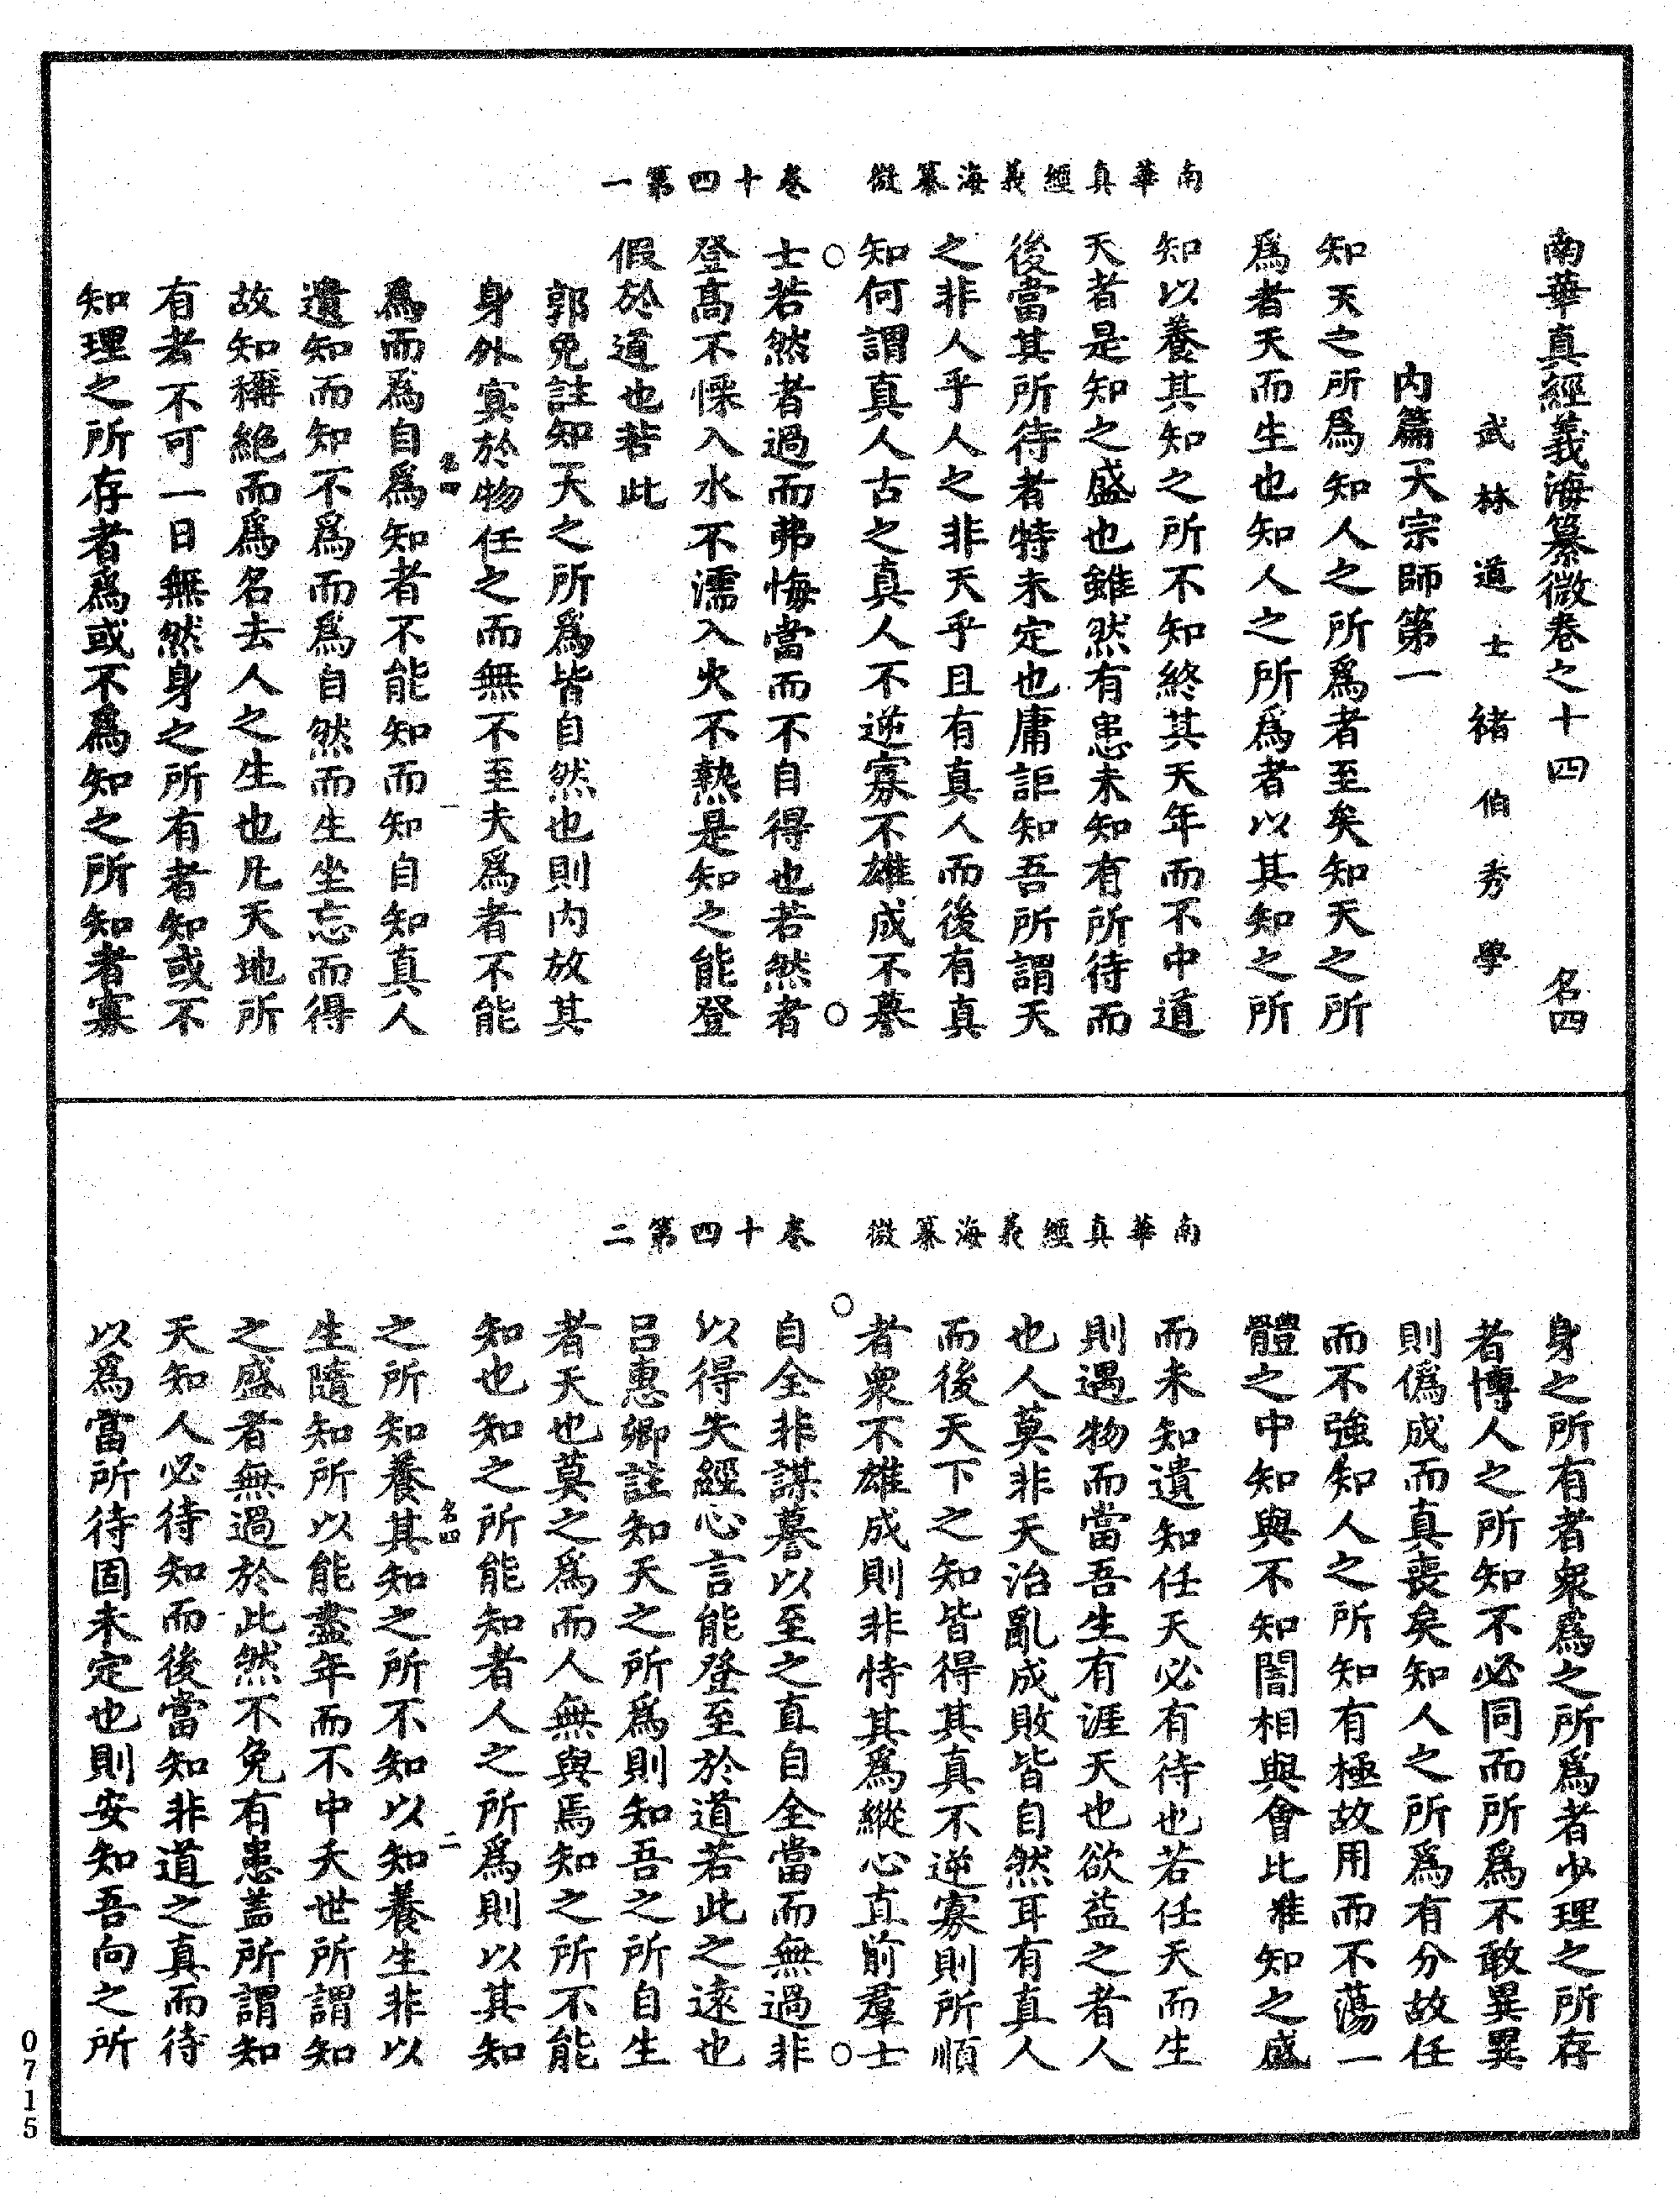 南華真經義海纂微 卷十四第一
南華真經義海纂微卷之十四 名四
武林道士褚伯秀學
內篇大宗師第一
知天之所爲知人之所爲者至矣知天之所
爲者天而生也知人之所爲者以其知之所
知以養其知之所不知終其天年而不中道
夭者是知之盛也雖然有患未知有所待而
後當其所待者特未定也庸詎知吾所謂天
之非人乎人之非天乎且有真人而後有真
知何謂真人古之真人不逆寡不雄成不謩
士若然者過而弗悔當而不自得也若然者
登高不慄入水不濡入火不熱是知之能登
假於道也若此
郭象註知天之所爲皆自然也則內放其
身外冥於物任之而無不至夫爲者不能
名四
一
爲而爲自爲知者不能知而知自知真人
遺知而知不爲而爲自然而生坐忘而得
故知稱絶而爲名去人之生也凡天地所
有者不可一日無然身之所有者知或不
知理之所存者爲或不爲知之所知者寡
南華真經義海纂微 卷十四第二
身之所有者衆爲之所爲者少理之所存
者博人之所知不必同而所爲不敢異異
則僞成而真喪矣知人之所爲有分故任
而不強知人之所知有極故用而不蕩一
體之中知與不知闇相與會比准知之盛
而未知遺知任天必有待也若任天而生
則遇物而當吾生有涯天也欲益之者人
也人莫非天治亂成敗皆自然耳有真人
而後天下之知皆得其真不逆寡則所順
者衆不雄成則非恃其爲縱心直前羣士
自全非謀謩以至之直自全當而無過非
以得失經心言能登至於道若此之遠也
呂惠卿註知天之所爲則知吾之所自生
者天也莫之爲而人無與焉知之所不能
知也知之所能知者人之所爲則以其知
名四
二
之所知養其知之所不知以知養生非以
生隨知所以能盡年而不中夭世所謂知
之盛者無過於此然不免有患盖所謂知
天知人必待知而後當知非道之真而待
以爲當所待固未定也則安知吾向之所
0715